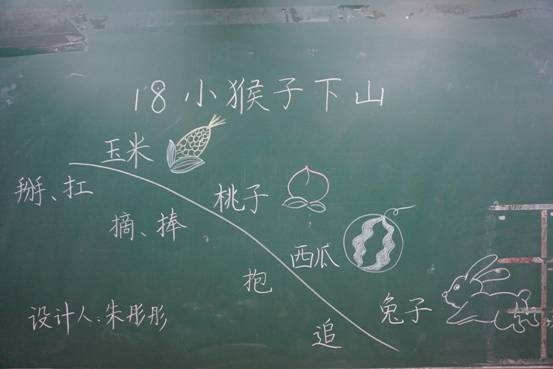 18 小猴子下山
玉米
掰、扛
桃子
摘、捧
西瓜
抱
兔子
追
设计人:朱彤彤